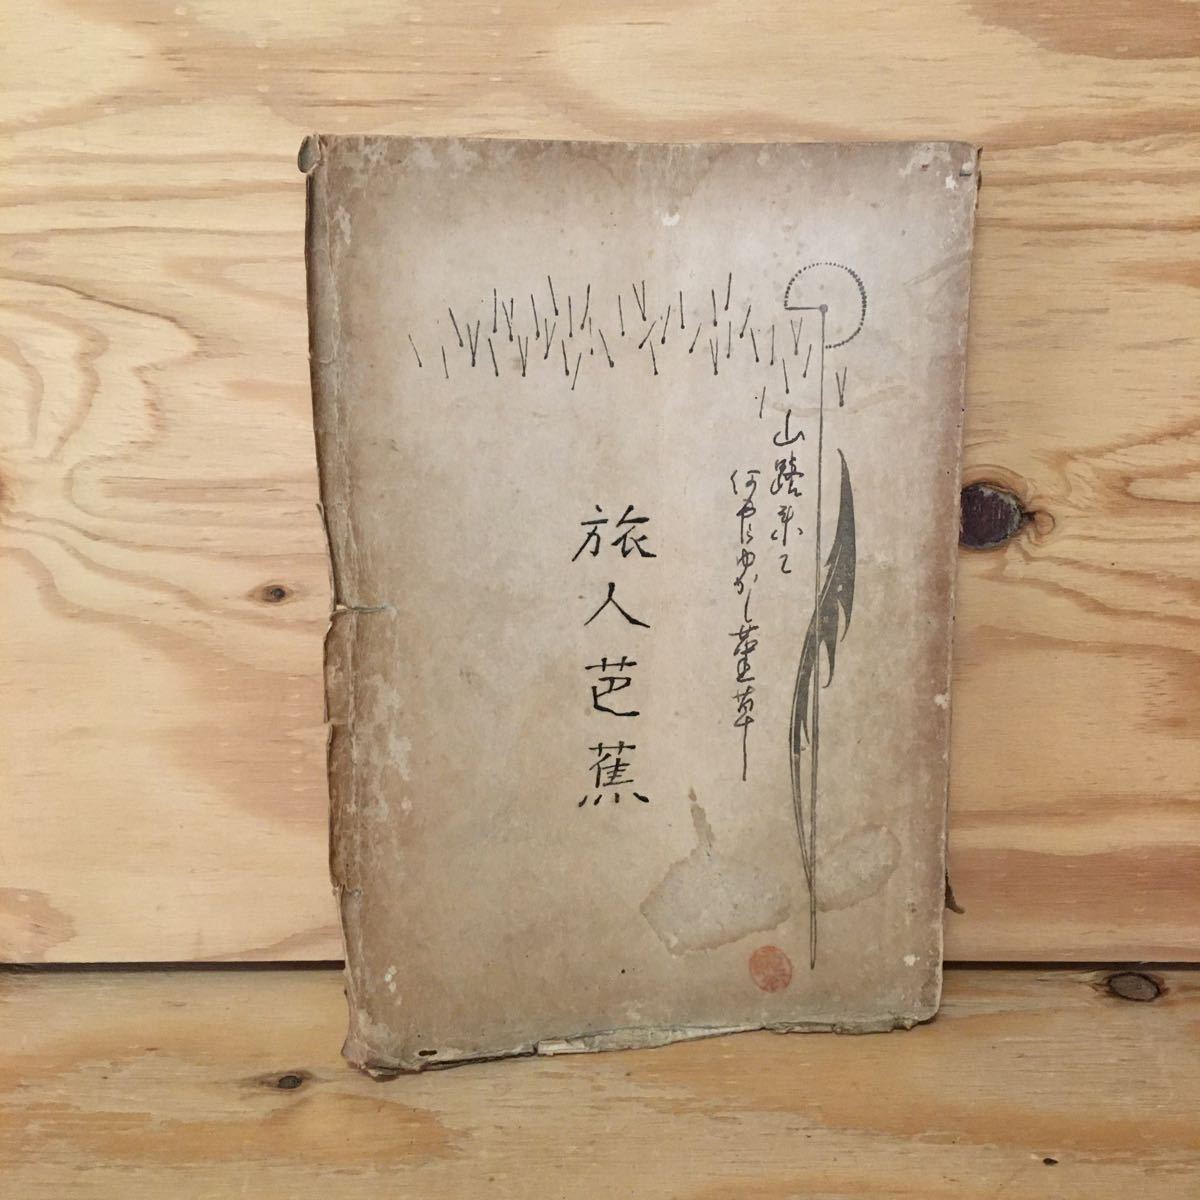 山路来て
何やらゆかし菫草
旅人芭蕉